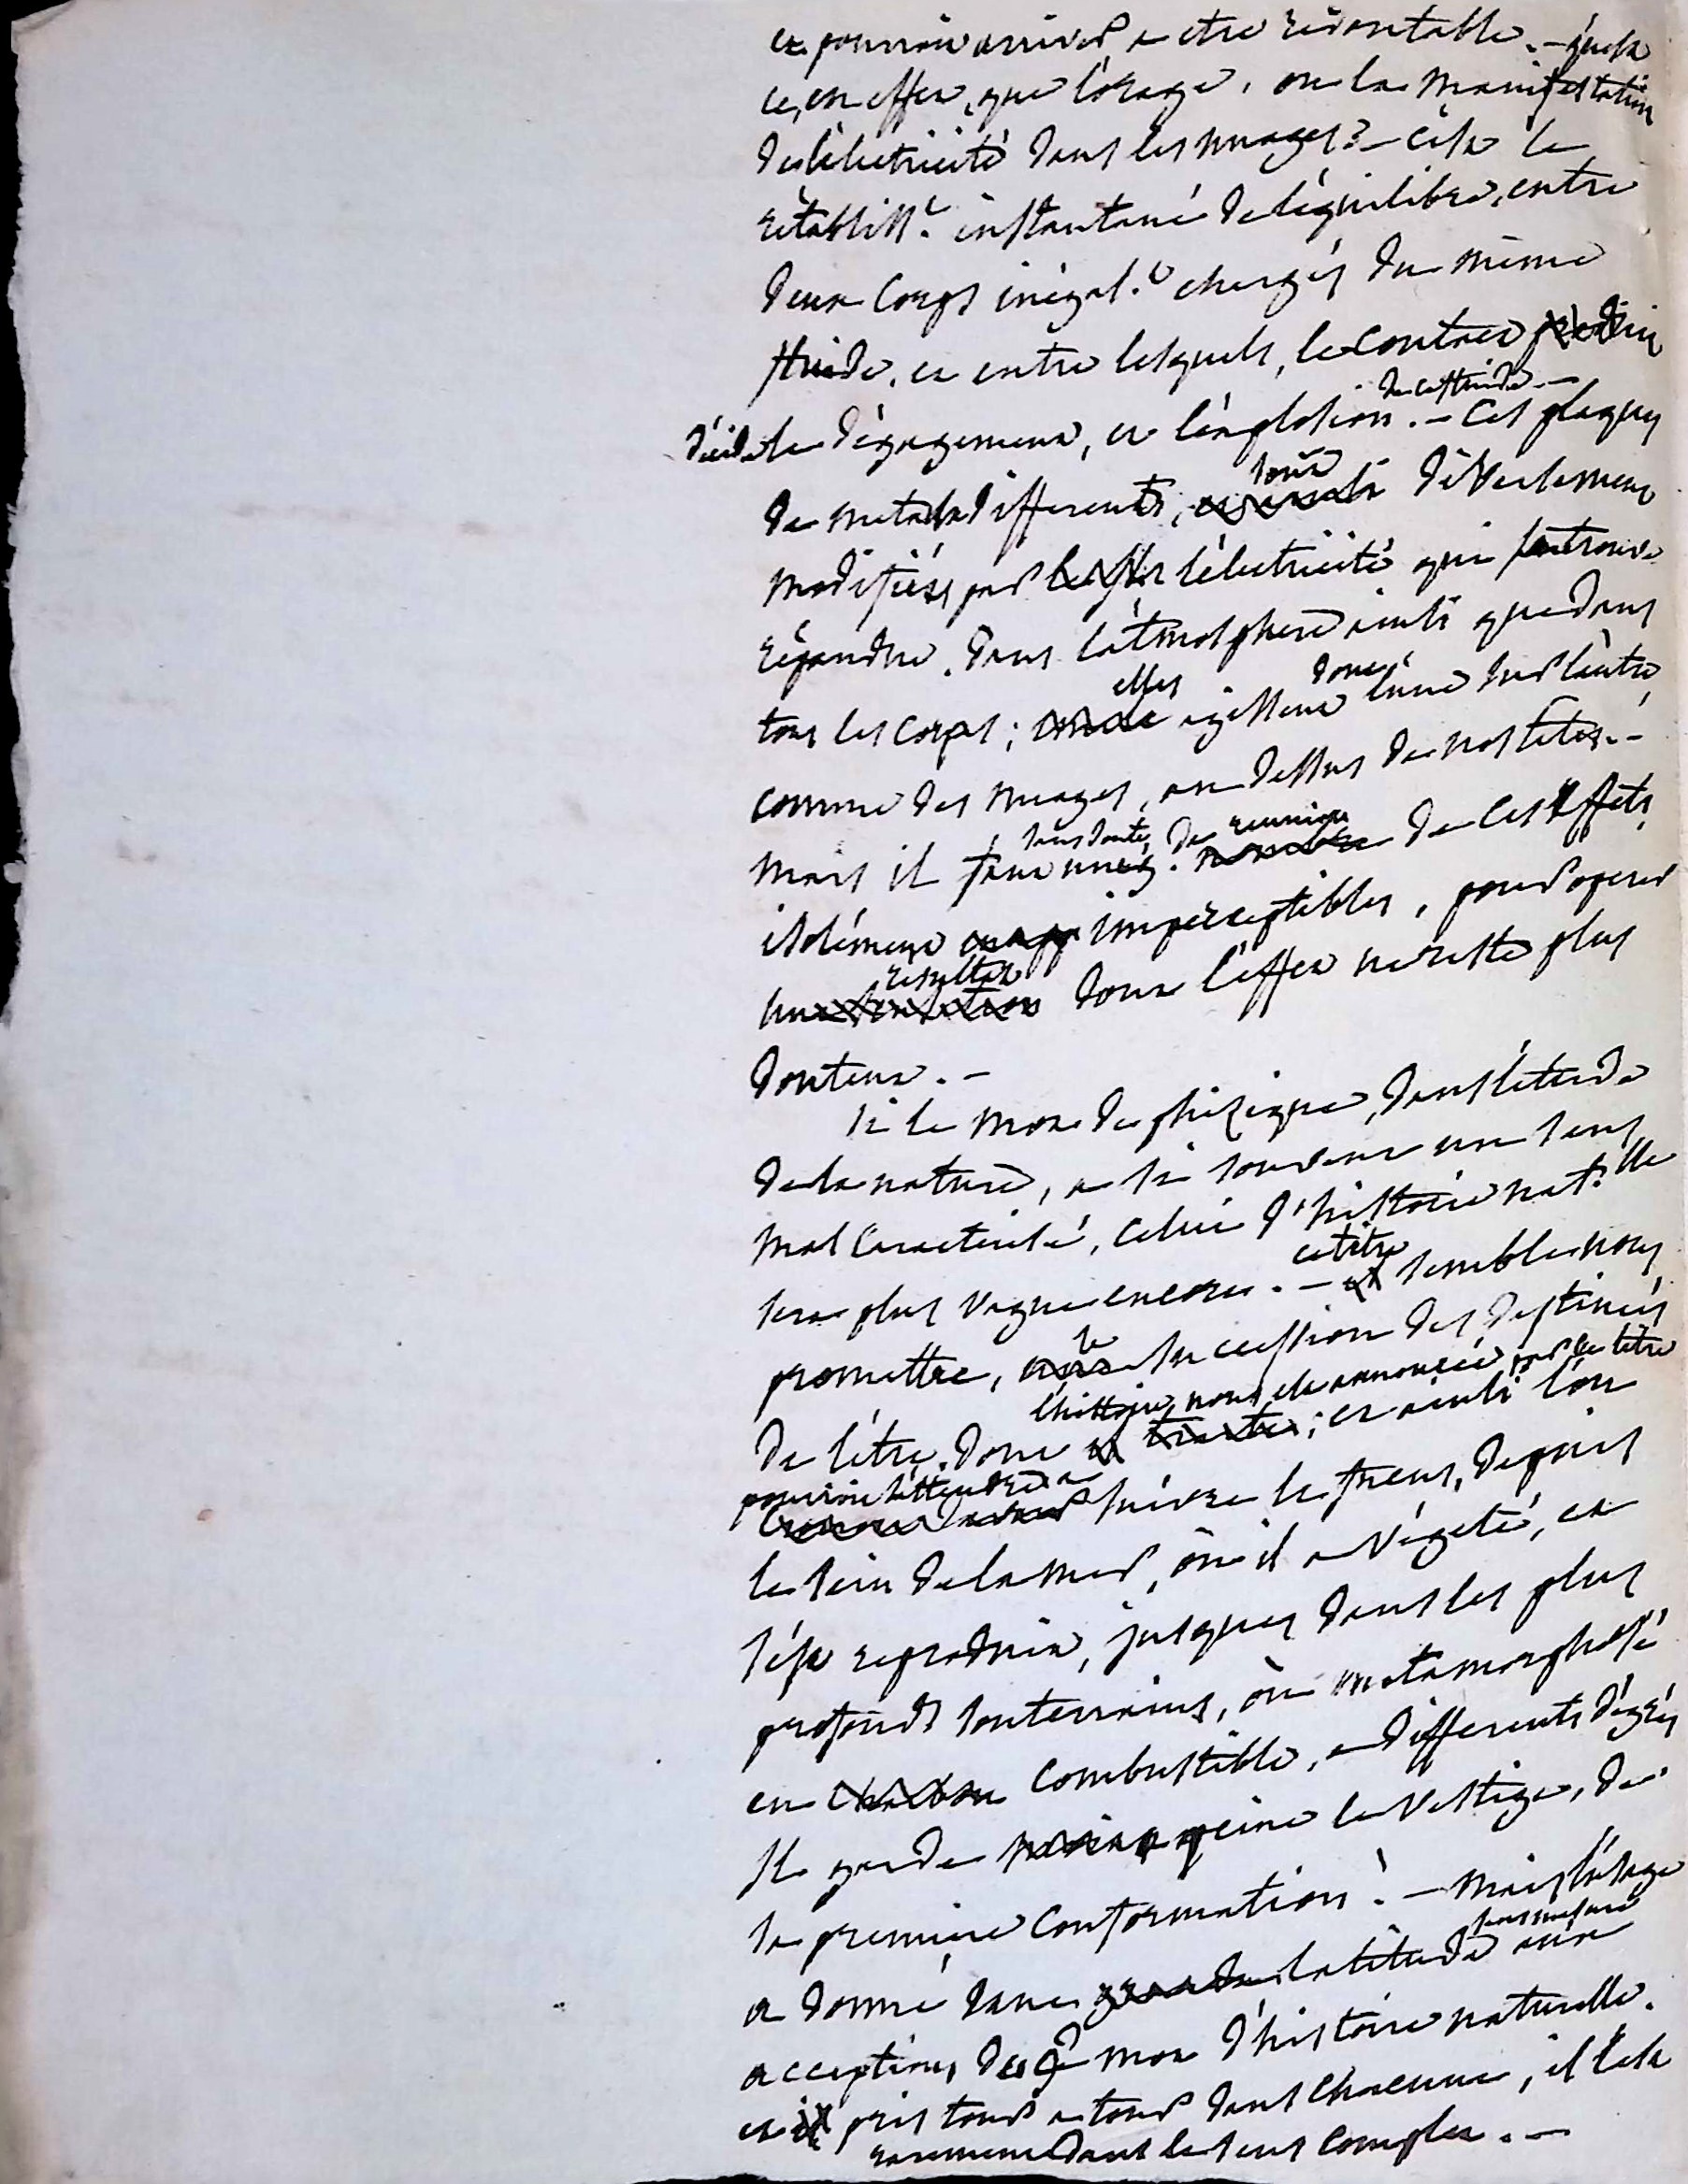 et pourroit arriver a etre rédoutable. – qu'est
ce, en effet, que l'orage, ou la manifestation
de l'électricité dans les nuages? – c'est le
rétabliss.t instantané de l'équilibre, entre
deux corps inégal.t chargés du même
fluide, et entre lesquels, le contact produit
décide le dégagement, et l'explosion de ce fluide. – Ces plaques
de metaux differents, sont diversement
modifiées par l'électricité qui se trouve
répandue, dans l'atmosphere ainsi que dans
tous les corps; elles agissent donc l'une sur l'autre,
comme des nuages, au dessus de nos têtes. –
mais il faut sans doute, une reunion de ces effets,
isolément imperceptibles, pour operer
un resultat dont l'effet ne reste plus
douteux. –
si le mot de phizique, dans l'étude
de la nature, a si souvent un sens
mal caracterisé, celui d'histoire nat.lle
sera plus vague encore. – ce titre semble nous
promettre, la succession des destinées
de l'être, dont l'histoire nous est annoncée, par le titre; et ainsi l'on
pourroit s'attendre a suivre le fucus, depuis
le sein de la mer, où il a végété, et
s'est reproduit, jusques dans les plus
profonds souterrains, où métamorphosé
en combustible, a differents dégrés
il garde a peine le vestige, de
sa premiere conformation. – mais l'usage
a donné tant de latitude sans mesure aux
acceptions, de ce mot d'histoire naturelle.
et pris tour a tour dans chacune, il l'est
rarement dans le sens complet. –